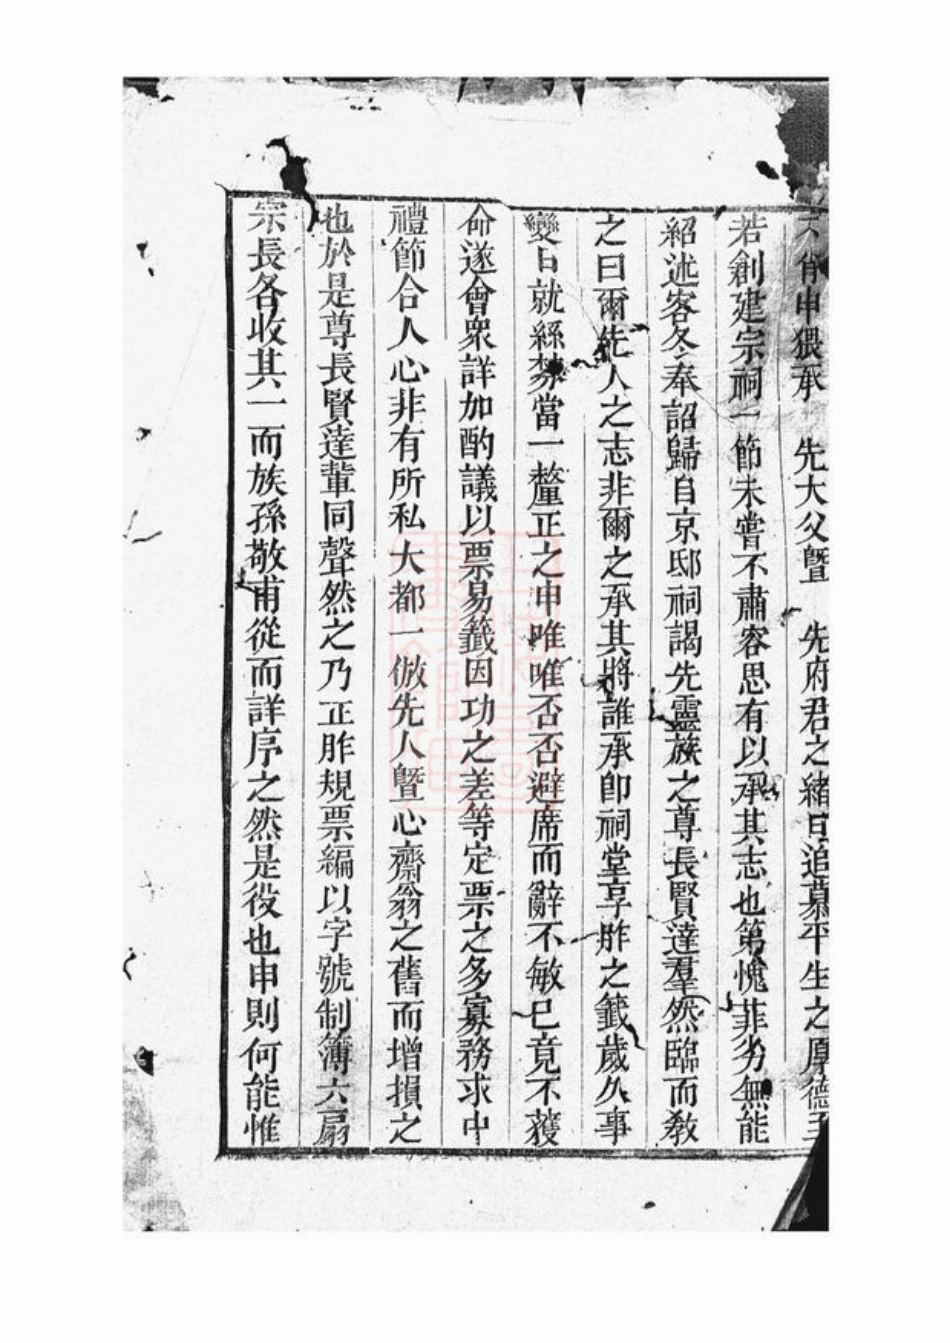 不肖申猥承　先大父暨　先府君之緒日追慕平生之厚德至
若創建宗祠一節未嘗不肅容思有以承其志也第愧菲劣無能
紹述客冬奉詔歸自京邸祠謁先靈族之尊長賢達羣然臨而教
之曰爾先人之志非爾之承其將誰承卽祠堂享胙之籤歲久事
變日就絲棼當一釐正之申唯唯否否避席而辭不敏已竟不獲
命遂會衆詳加酌議以票易籤因功之差等定票之多寡務求中
禮節合人心非有所私大都一倣先人暨心齋翁之舊而增損之
也於是尊長賢達輩同聲然之乃正胙規票編以字號制簿六扇
宗長各收其一而族孫敬甫從而詳序之然是役也申則何能惟